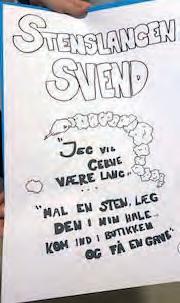 STENSLANGEN
SVEND
"JEG VIL
GERNE
VÆRE LANG"
....
"MAL EN STEN, LÆG
DEN I MIN HALE..
KOM IND I BUTIKKEN
OG FÅ EN GAVE"